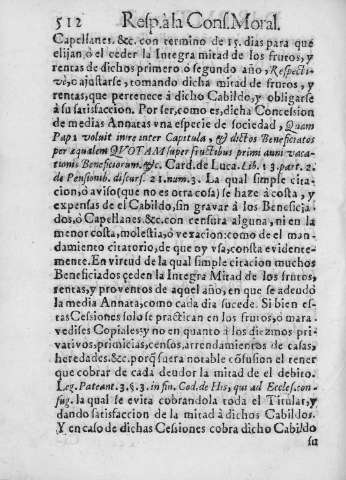 512 Resp. à la Cons. Moral.
Capellanes. &c. con termino de 15. dias para que
elijan, ò el ceder la Integra mitad de los frutos, y
rentas de dichos primero ò segundo año, Respecti-
vè, ò ajustarse, tomando dicha mitad de frutos, y
rentas, que pertenece à dicho Cabildo, y obligarse
à su satisfaccion. Por ser, como es, dicha Concession
de medias Annatas vna especie de sociedad, Quam
Papa voluit inire inter Capitula, & dictos Beneficiatos
per æqualem QVOTAM super fructibus primi anni vaca-
tionis Beneficiorum. &c. Card. de Luca. Lib. 13. part. 2.
de Pensionib. discurs. 21. num. 3. La qual simple cita
cion, ò aviso (que no es otra cosa) se haze à costa, y
expensas de el Cabildo, sin gravar à los Beneficia-
dos, ò Capellanes. &c. con censura alguna, ni en la
menor costa, molestia, ò vexacion: como de el man-
damiento citatorio, de que oy vsa, consta evidente-
mente. En virtud de la qual simple citacion muchos
Beneficiados çeden la Integra Mitad de los frutos,
rentas, y proventos de aquel año, en que se adeudò
la media Annata, como cada dia sucede. Si bien es-
tas Cessiones solo se practican en los frutos, ò mara-
vedises Copiales: y no en quanto à los diezmos pri-
vativos, primicias, censos, arrendamientos de casas,
heredades. &c. porq̃ fuera notable cõfusion el tener
que cobrar de cada deudor la mitad de el debito.
Leg. Pateant. 3. §. 3. in fin. Cod. de His, qui ad Eccles. con-
fug. la qual se evita cobrandola toda el Titular, y
dando satisfaccion de la mitad à dichos Cabildos.
Y en caso de dichas Cessiones cobra dicho Cabildo
su